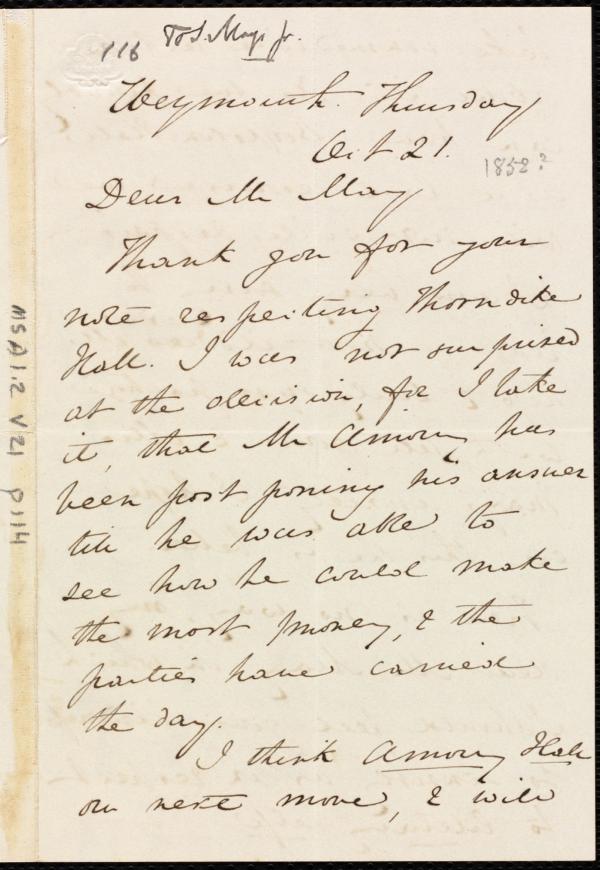 116 To S. May Jr.
Weymouth. Thursday
Oct 21.
1852?
Dear Mr May
Thank you for your
note respecting Thorndike
Hall. I was not surprised
at the decision, for I take
it, that Mr Amory has
been post poning his answer
till he was able to
see how he could make
the most money, & the
parties have carried
the day.
I think Amory Hall
our next move, & will
MS A 1.2 V 21 p 114